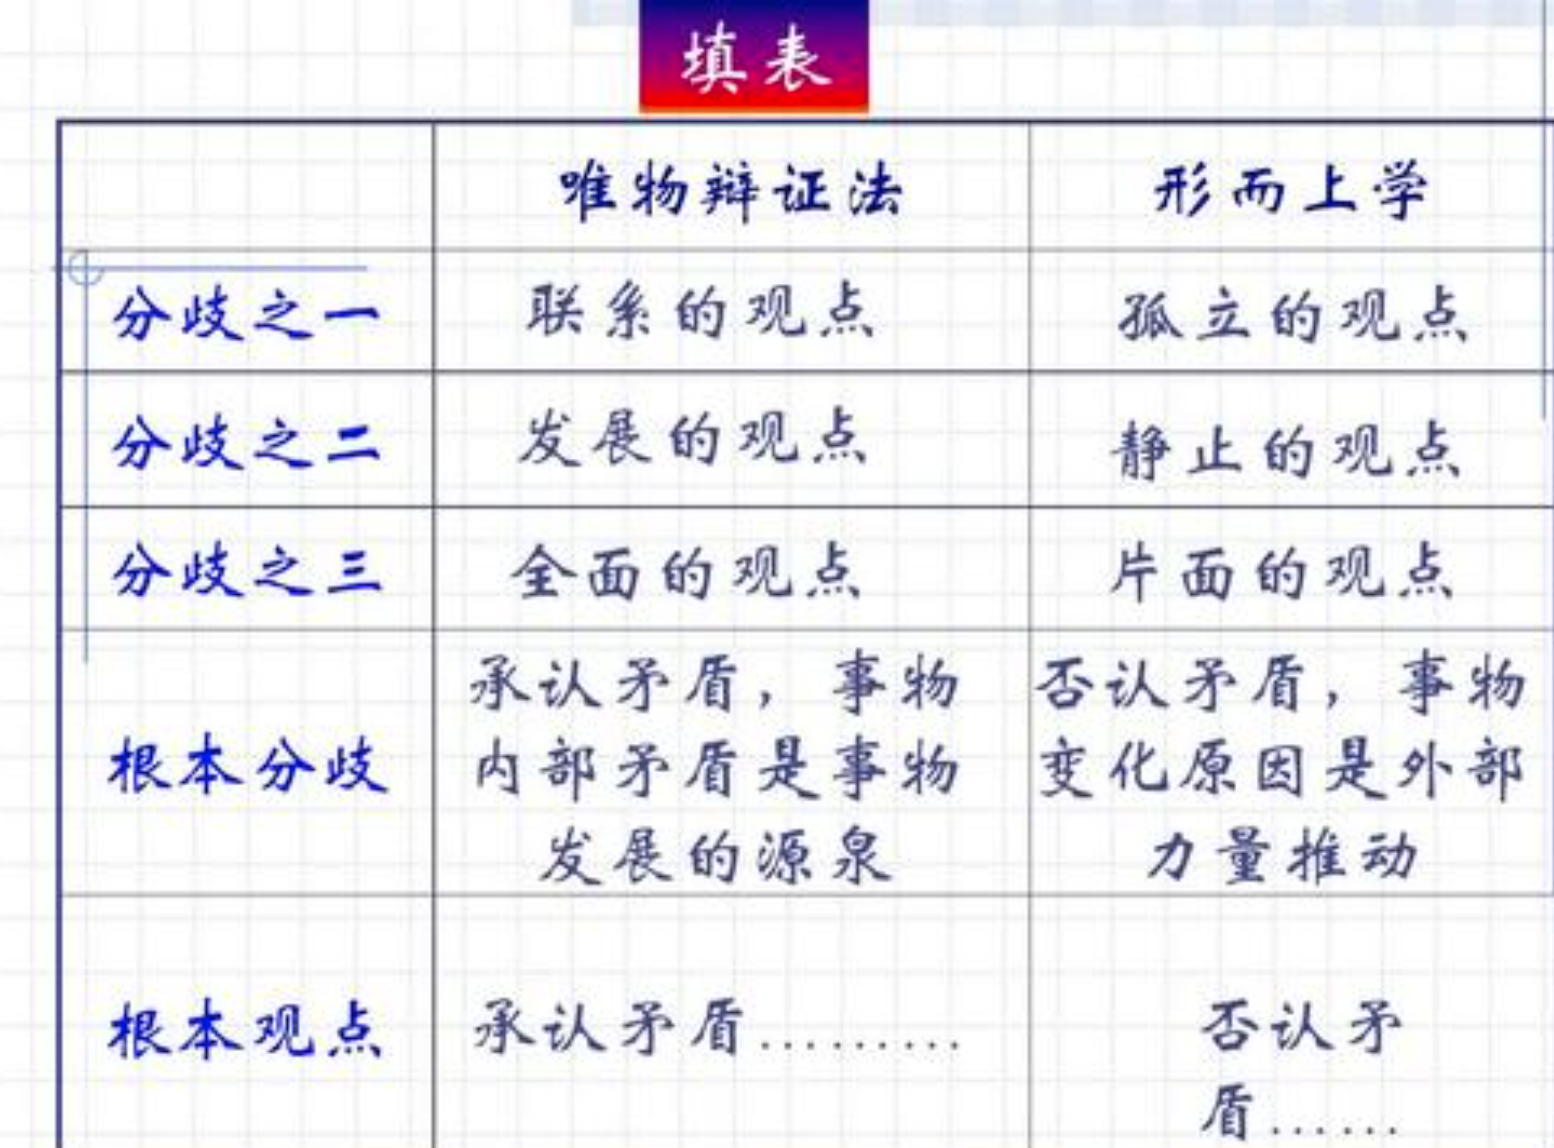 填表
唯物辩证法 形而上学
分歧之一 联系的观点 孤立的观点
分歧之二 发展的观点 静止的观点
分歧之三 全面的观点 片面的观点
根本分歧
承认矛盾，事物
内部矛盾是事物
发展的源泉
否认矛盾，事物
变化原因是外部
力量推动
根本观点
承认矛盾.........
否认矛
盾......